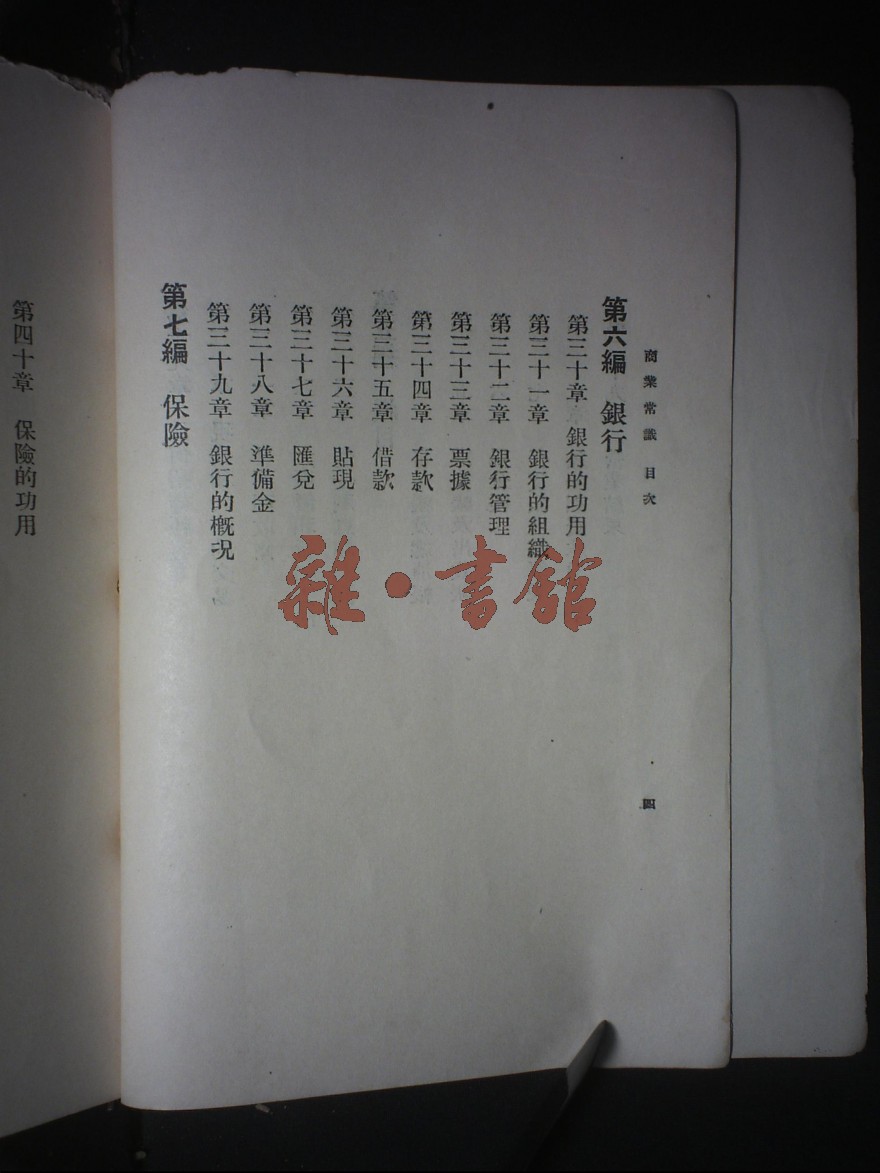 商業常識 目次
四
第六編 銀行
第三十章 銀行的功用
第三十一章 銀行的組織
第三十二章 銀行管理
第三十三章 票據
第三十四章 存款
第三十五章 借款
第三十六章 貼現
第三十七章 匯兌
第三十八章 準備金
第三十九章 銀行的概況
第七編 保險
第四十章 保險的功用
雜·書館